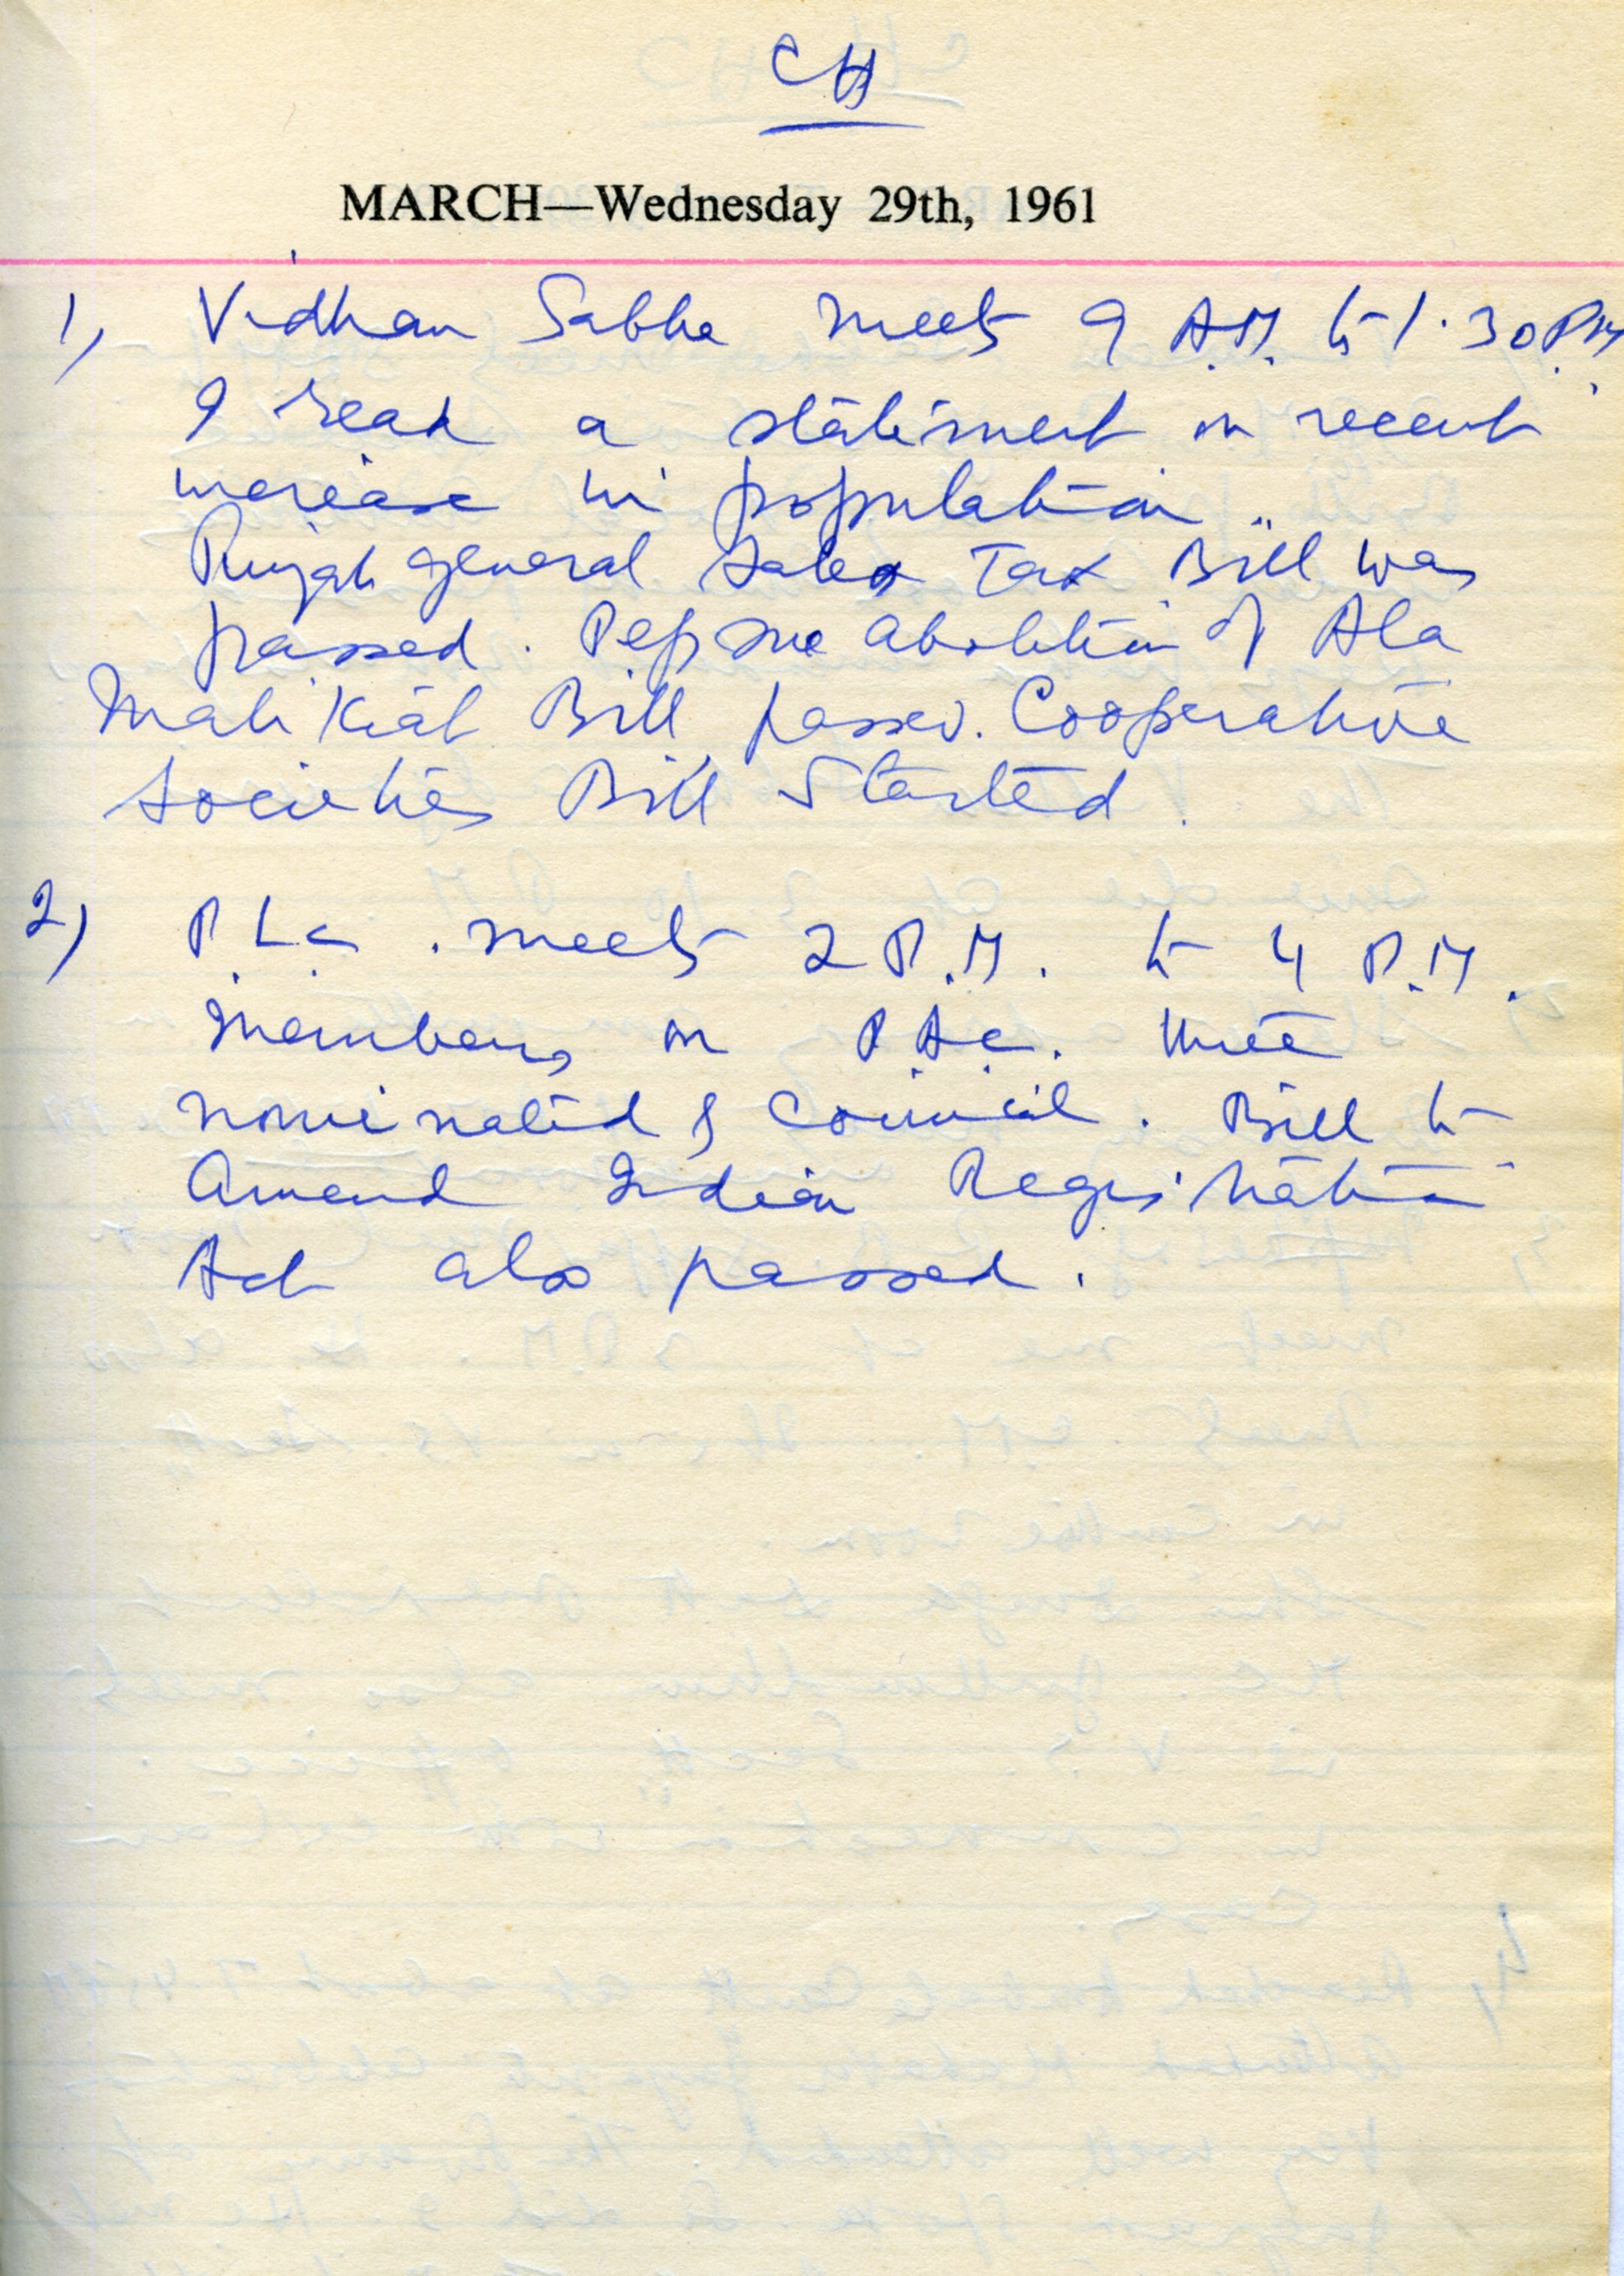 CH
MARCH—Wednesday 29th, 1961
1) Vidhan Sabha meets 9 A.M. to 1.30 P.M.
I read a statement on recent
increase in population.
Punjab general Sales Tax Bill was
passed. Pepsu abolition of Ala
Malikiat Bill passed. Cooperative
Societies Bill Started.
2) P.L.C. meets 2 P.M. to 4 P.M.
Members on P.A.C. were
nominated by Council. Bill to
Amend Indian Registration
Act also passed.